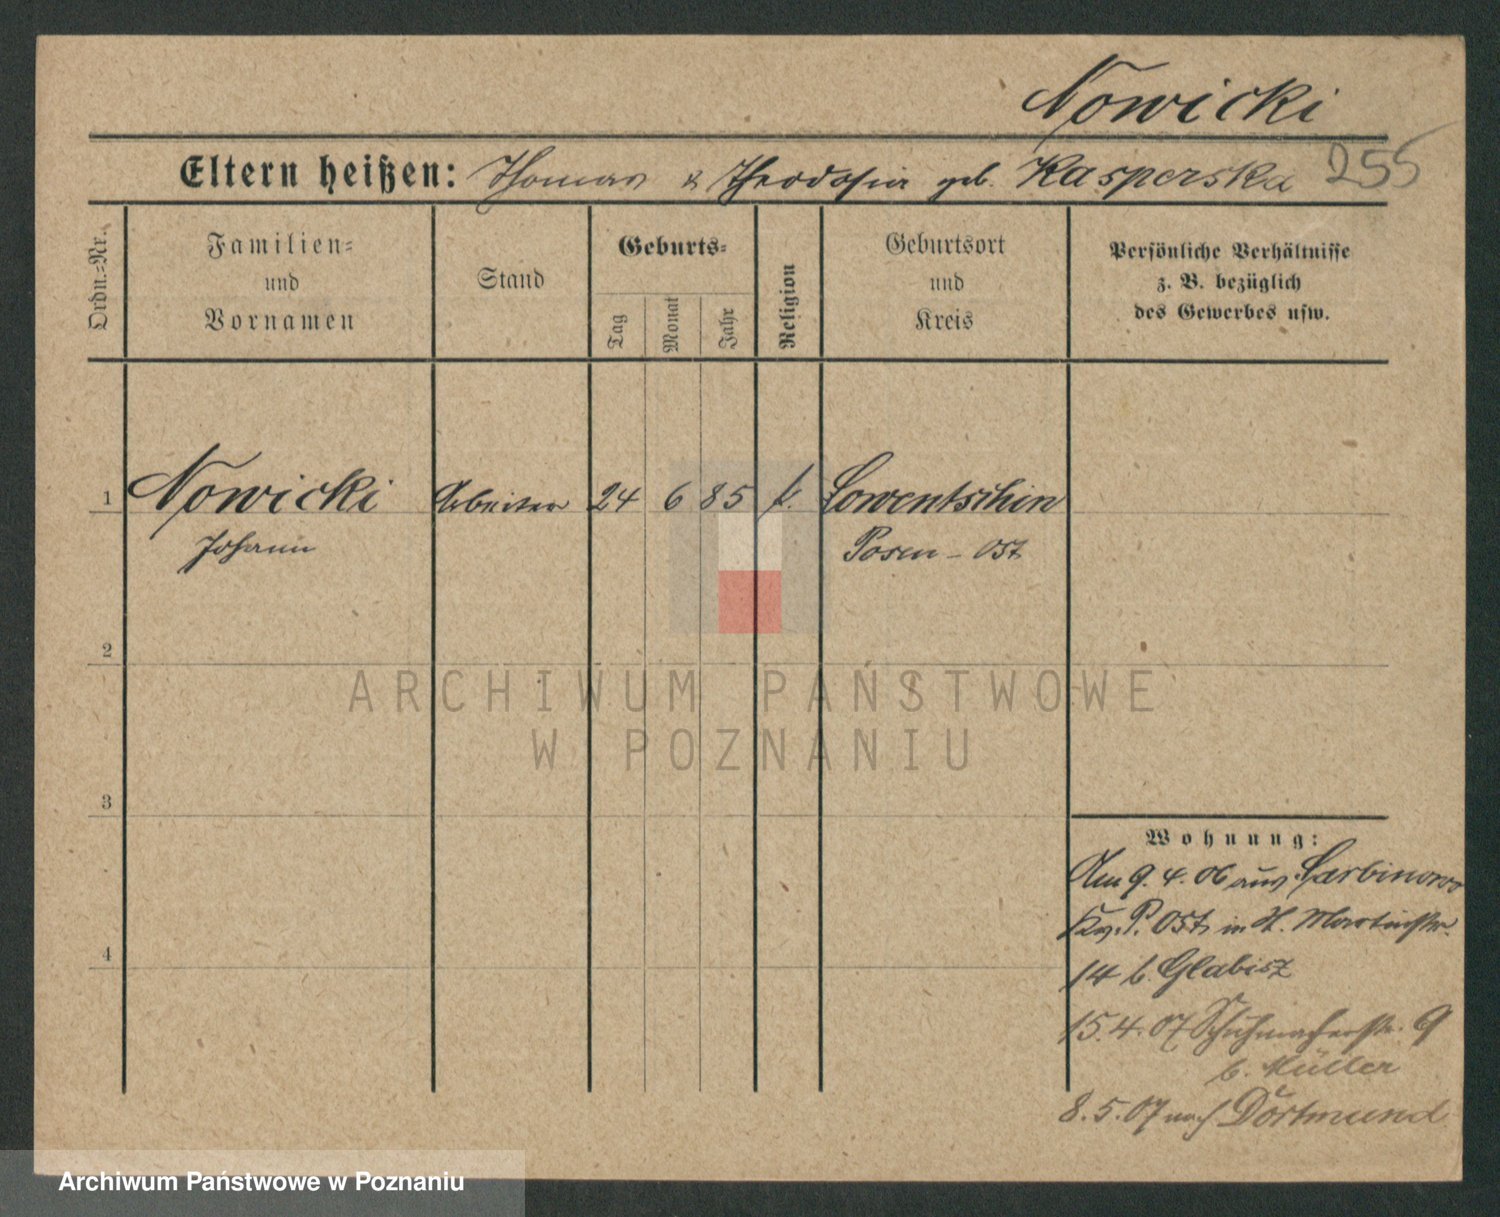 Nowicki
Eltern heißen: Thomas & Theodosia geb. Kasperska 255
Ordn.=Nr.
Familien=
und
Vornamen
Stand
Geburts=
Tag
Monat
Jahr
Religion
Geburtsort
und
Kreis
Persönliche Verhältnisse
z. B. bezüglich
des Gewerbes usw.
1 Nowicki Arbeiter 24 6 85 k. Lowentschin
Johann Posen - Ost
2
ARCHIWUM PAŃSTWOWE
W POZNANIU
3
Wohnung:
Am 9. 4. 06 aus Garbinowo
Kr. P. Ost in St. Martinstr.
4
14 b. Glabisz
15.4.07 Schuhmacherstr. 9
b. Müller
8.5.07 nach Dortmund
Archiwum Państwowe w Poznaniu